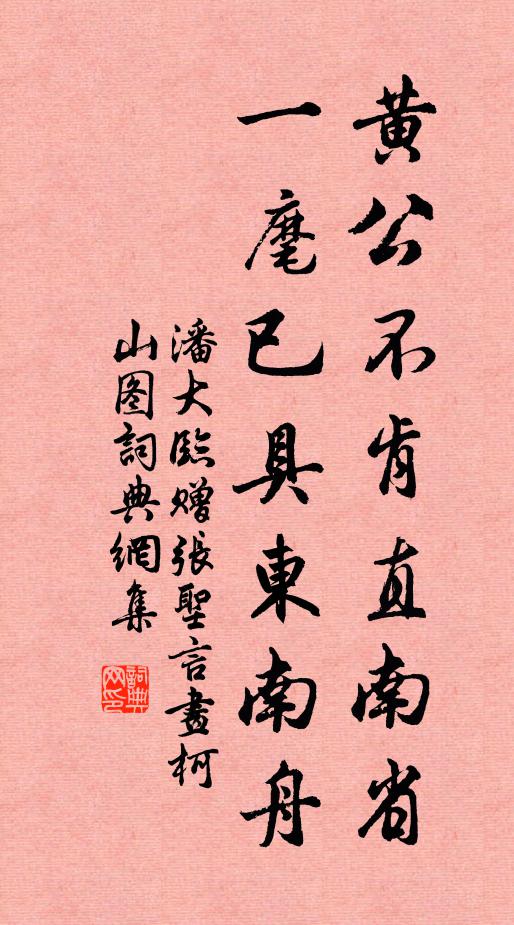 黄公不肯直南省
一麾已具東南舟
潘大臨贈張聖言畫柯
山图詞典網集
詞典网印